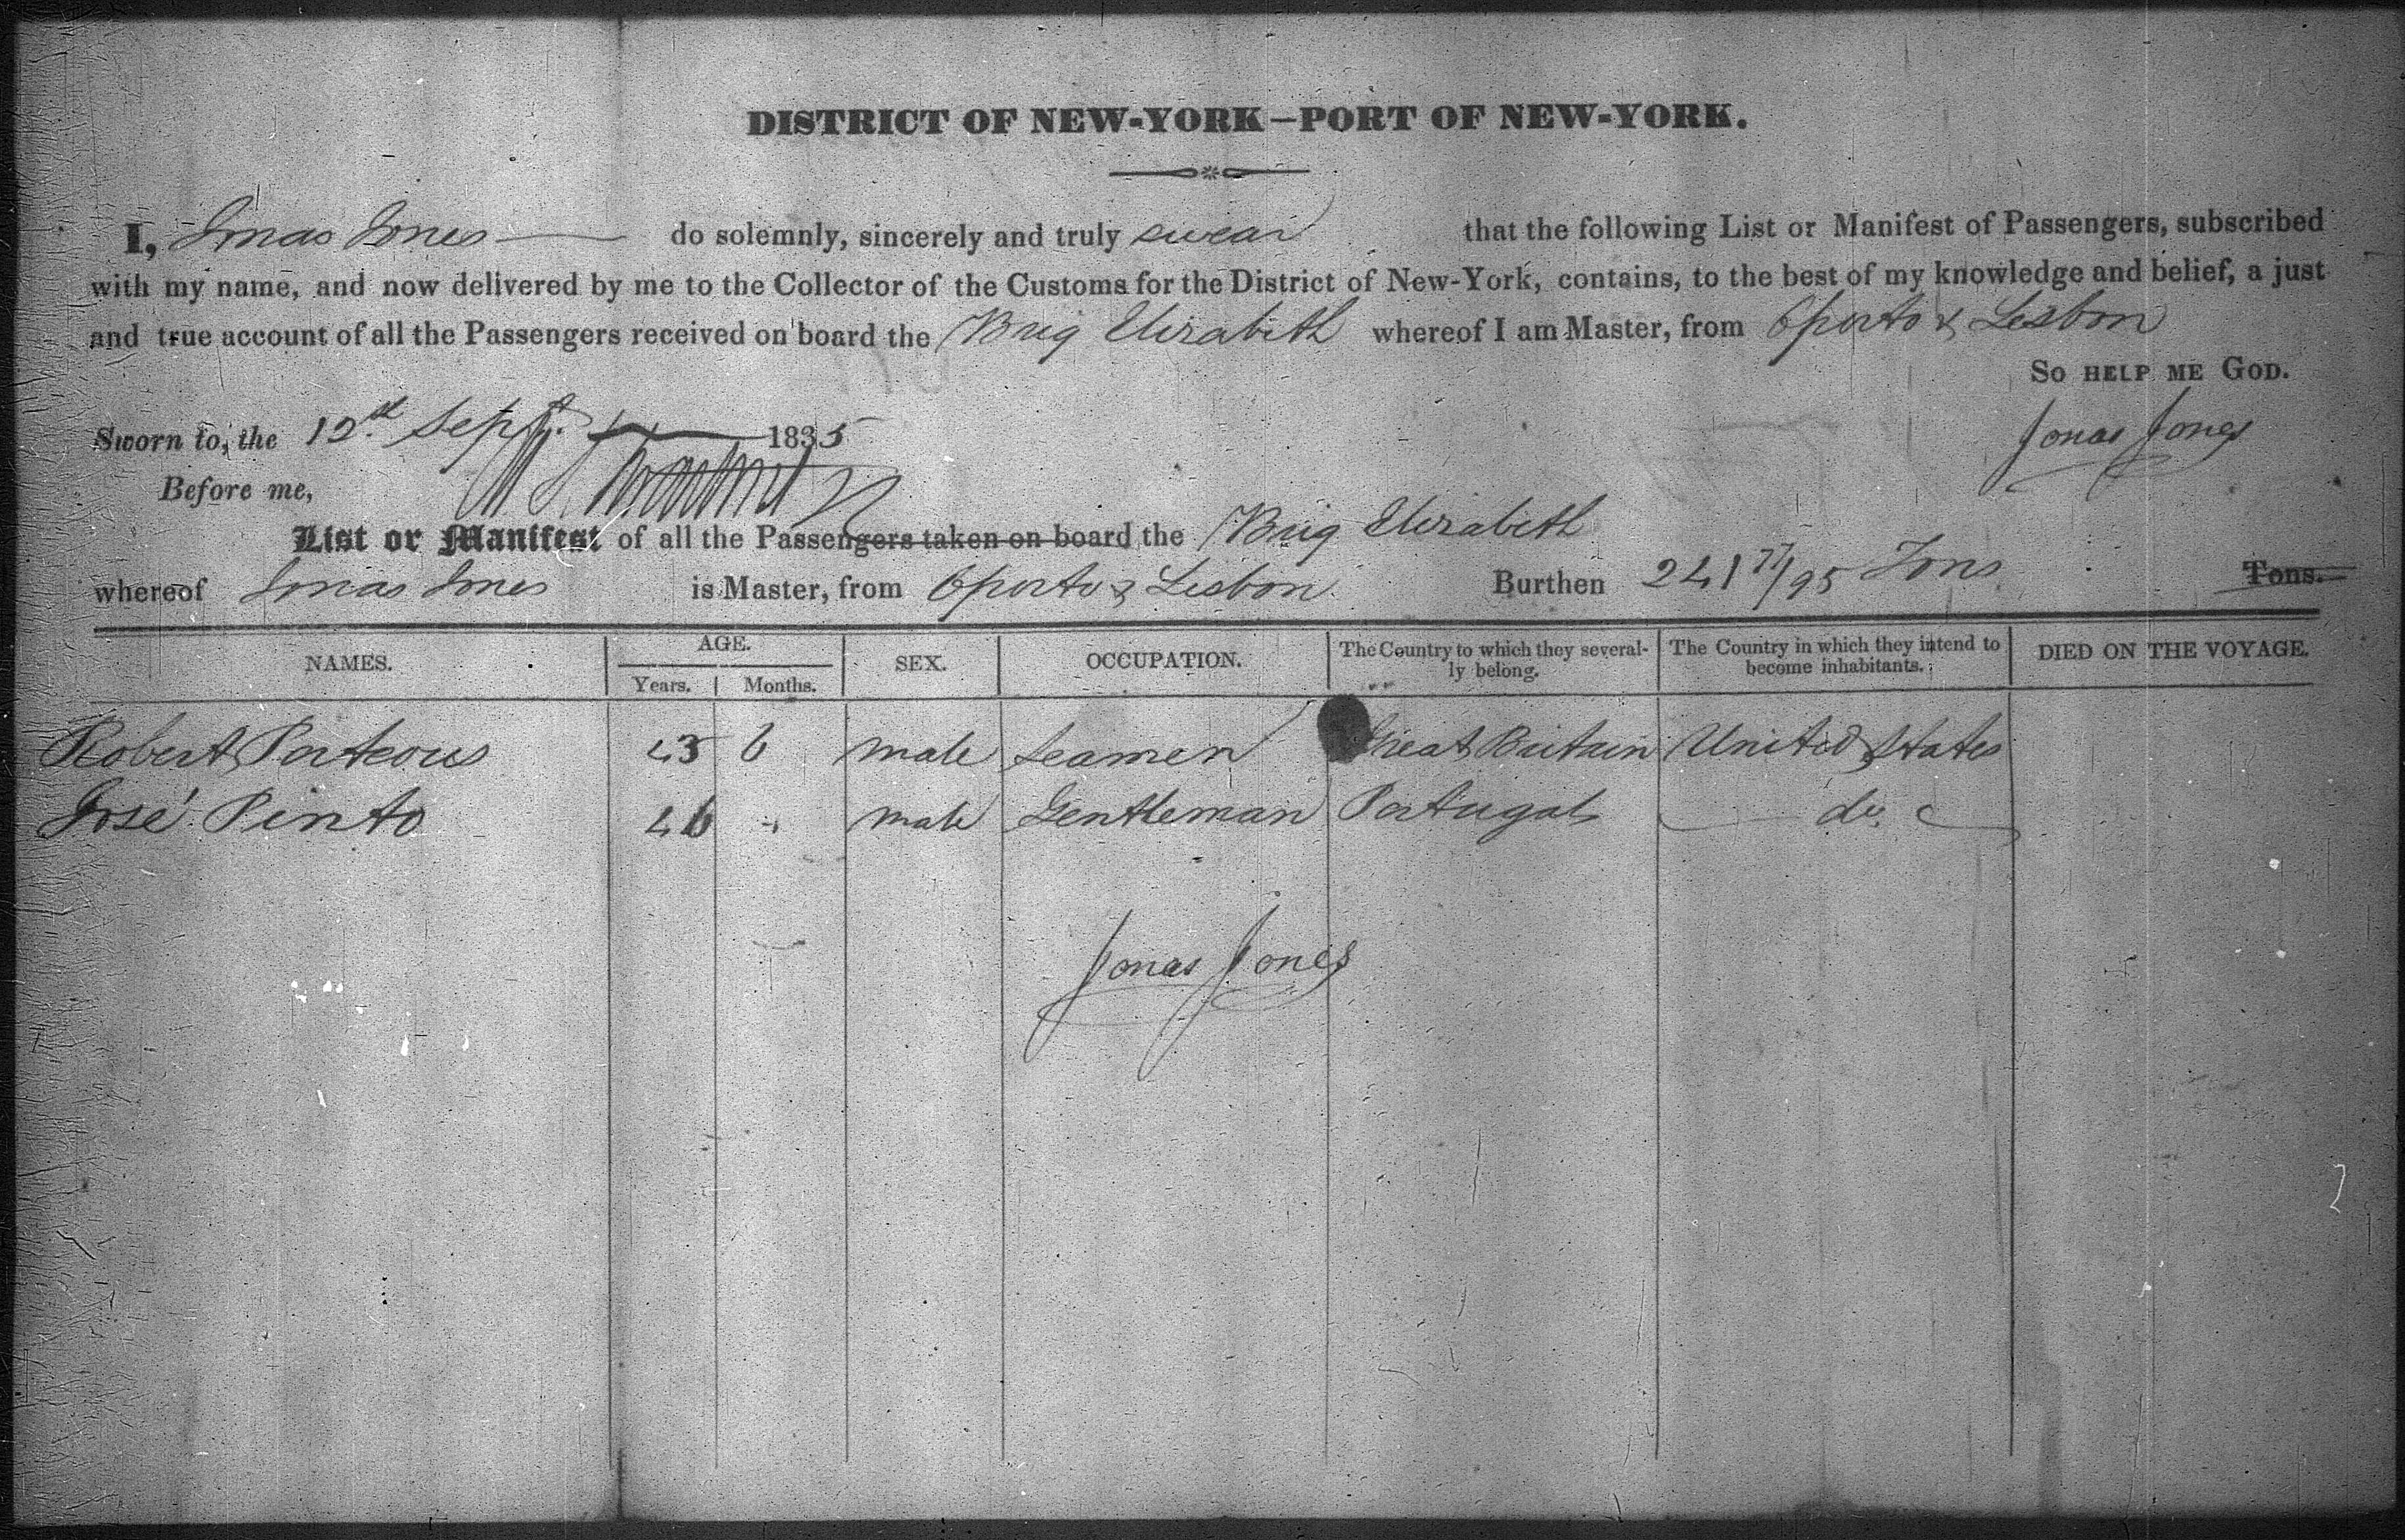 DISTRICT OF NEW-YORK—PORT OF NEW-YORK.
I, Jonas Jones do solemnly, sincerely and truly swear that the following List or Manifest of Passengers, subscribed
with my name, and now delivered by me to the Collector of the Customs for the District of New-York, contains, to the best of my knowledge and belief, a just
and true account of all the Passengers received on board the Brig Elizabeth whereof I am Master, from Oporto & Lisbon
So HELP ME GOD.
Sworn to, the 12d. Sept. 1835
Jonas Jones
Before me,
List or Manifest of all the Passengers taken on board the Brig Elizabeth
whereof Jonas Jones is Master, from Oporto & Lisbon. Burthen 241 77/95 Tons Tons.
NAMES. AGE. SEX. OCCUPATION. The Country to which they severally belong. The Country in which they intend to become inhabitants. DIED ON THE VOYAGE.
Years. Months.
Robert Porteous 45 6 male Seamen Great Britain United States
José Pinto 46 - male Gentleman Portugal do.
Jonas Jones